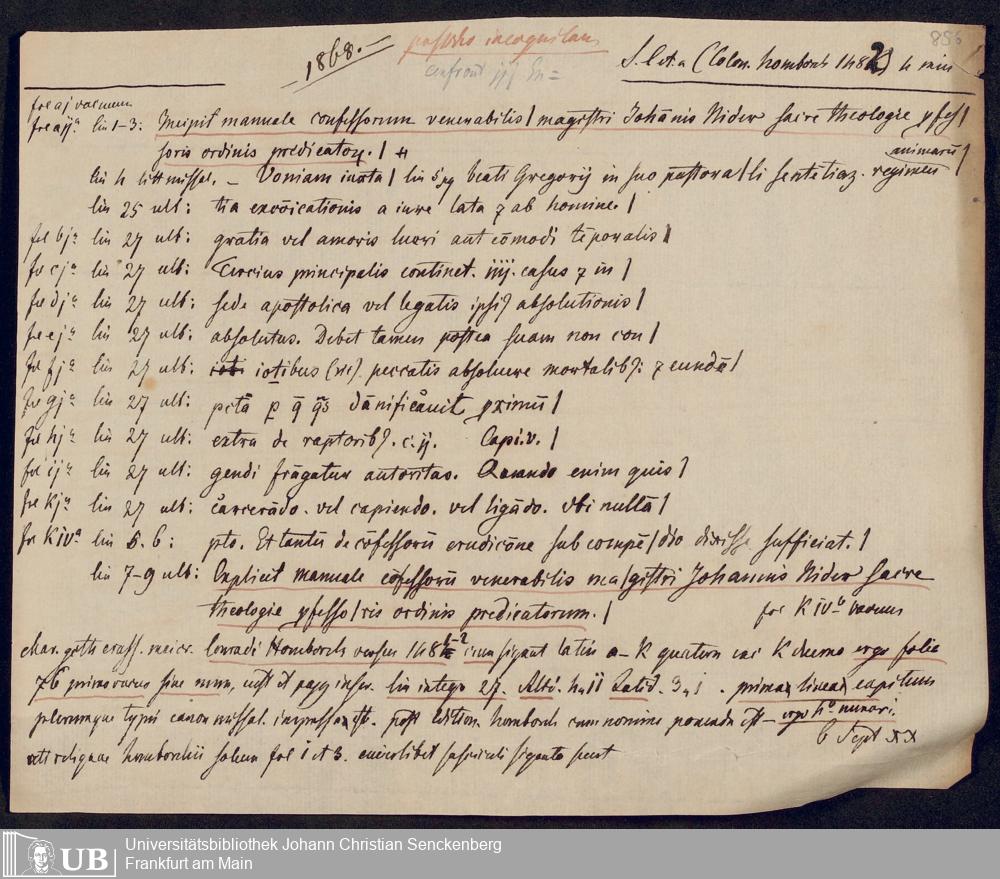 1868.—
856
S. l et a (Colon. homborch 1482) 4 min
fol aj vacuum
fol aijª lin 1–3: Incipit manuale confessorum venerabilis | magistri Johānis Nider sacre theologie pfes|
soris ordinis predicatoꝝ. |
lin 4 litt missal. – Voniam iuxta | lin 5 beati Gregorij in suo pastora|li sentētiaz. regimen animarū |
lin 25 ult: tia exvōicationis a iure lata ⁊ ab homine. |
fol bjª lin 27 ult: gratia vel amoris lucri aut cōmodi tēporalis |
fo cjª lin 27 ult: Tercius principalis continet. iiij. casus ⁊ in |
fo djª lin 27 ult: sede apostolica vel legatis ipsiꝰ absolutionis |
fo ejª lin 27 ult: absolutus. Debet tamen postea suam non con |
fol fjª lin 27 ult: iotibus (sic). peccatis absoluere mortalibꝰ: ⁊ eundē |
fo gjª lin 27 ult: pctā p̱ q̄ q̄s dānificauit pximū |
fol hjª lin 27 ult: extra de raptoribꝰ. c. ij. Capi. v. |
fol ijª lin 27 ult: gendi frāgatur autoritas. Quando enim quis |
fo kjª lin 27 ult: carcerādo. vel capiendo. vel ligādo. vbi nullā |
fo k ivª lin 5. 6: pto. Et tantū de cōfessorū erudicōne sub compē|dio dixisse sufficiat. |
lin 7–9 ult: Explicit manuale cōfessorū venerabilis ma|gistri Johannis Nider sacre
theologie pfesso|ris ordinis predicatorum. | fol k ivᵇ vacuum
char. goth crass. maior. Conradi Homborch cum signat latin a–k quatern k duerno ergo folia
76 primo vacuo sine num, cust et pagg inscr. lin integr 27. prima linea capitum
plerumque typis canon missal. impressa est. post edition. homborch cum nomine ponenda est –
6 Sept xx
uti reliquae homborchii solum fol 1 et 3. cuiuslibet fasciculi signata sunt
UB
Universitätsbibliothek Johann Christian Senckenberg
Frankfurt am Main